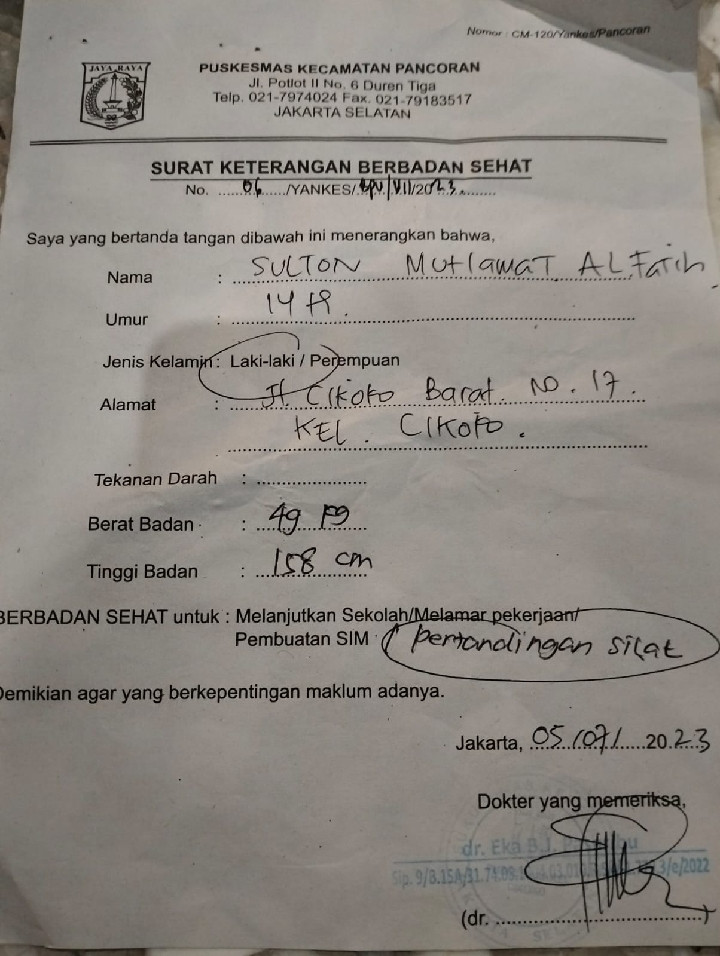 Nomor : CM-120/Yankes/Pancoran
JAYA RAYA
PUSKESMAS KECAMATAN PANCORAN
Jl. Potlot II No. 6 Duren Tiga
Telp. 021-7974024 Fax. 021-79183517
JAKARTA SELATAN
SURAT KETERANGAN BERBADAN SEHAT
No. ........06....../YANKES/.BPU/VII/2023.........
Saya yang bertanda tangan dibawah ini menerangkan bahwa,
Nama : SULTON Mutlawat AL Fatih
Umur : 14 th
Jenis Kelamin : Laki-laki / Perempuan
Alamat : Jl. Cikoko Barat No. 17.
KEL. CIKOKO.
Tekanan Darah : ......................
Berat Badan : 49 kg
Tinggi Badan : 158 cm
BERBADAN SEHAT untuk : Melanjutkan Sekolah/Melamar pekerjaan/
Pembuatan SIM / pertandingan silat
Demikian agar yang berkepentingan maklum adanya.
Jakarta, 05/07/.....20.23
Dokter yang memeriksa,
dr. Eka B.J.
(dr. ......................................)